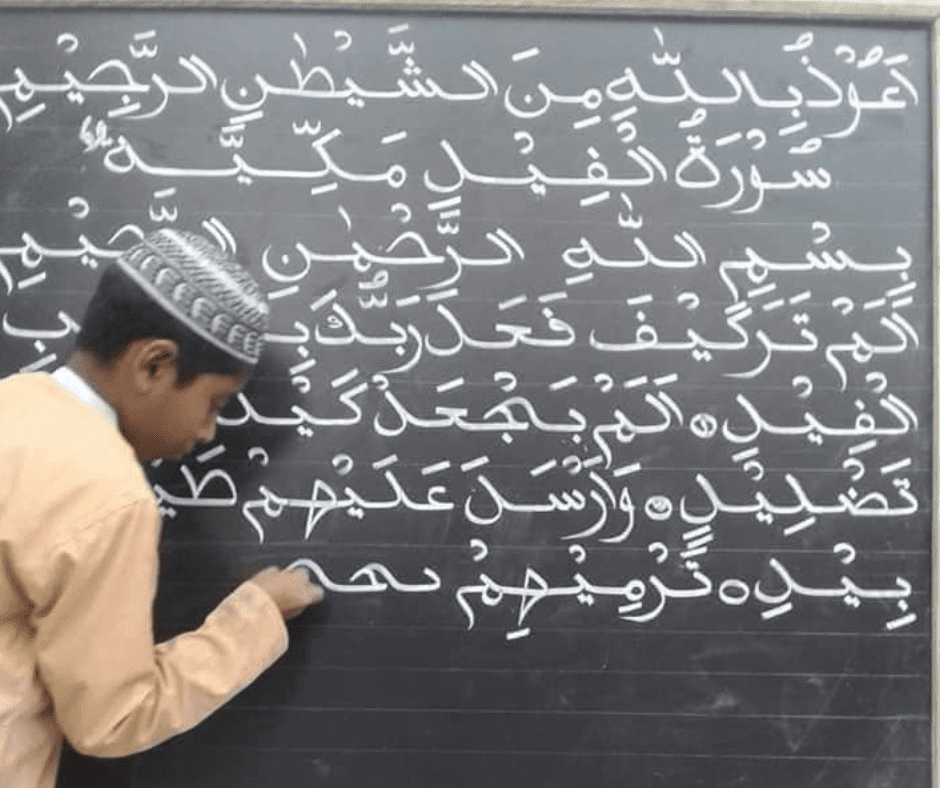 اَعُوْذُ بِاللّٰهِ مِنَ الشَّيْطٰنِ الرَّجِيْمِ
سُوْرَةُ الْفِيْلِ مَكِّيَّةٌ
بِسْمِ اللّٰهِ الرَّحْمٰنِ الرَّحِيْمِ
اَلَمْ تَرَ كَيْفَ فَعَلَ رَبُّكَ
الْفِيْلِ ۱ اَلَمْ يَجْعَلْ كَيْدَ
تَضْلِيْلٍ ۲ وَاَرْسَلَ عَلَيْهِمْ
بِيْلِ ○ تَرْمِيْهِمْ